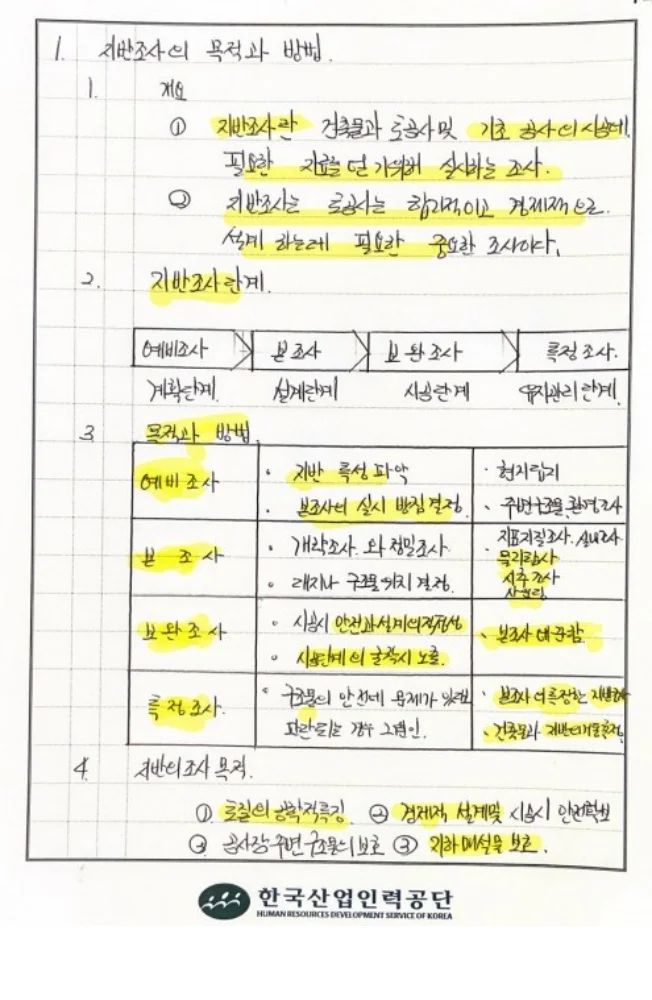 1. 지반조사의 목적과 방법.
1. 개요
① 지반조사란 건축물과 토공사 및 기초 공사의 시공에
필요한 자료를 얻기 위해 실시하는 조사.
② 지반조사는 토공사는 합리적이고 경제적으로
설계 하는데 필요한 중요한 조사이다.
2. 지반조사단계.
예비조사 본조사 보완조사 특정조사.
계획단계. 설계단계 시공단계 유지관리단계.
3. 목적과 방법.
예비조사
· 지반 특성 파악
· 본조사의 실시 방침 결정.
· 현지답지
· 주변구조물, 환경조사
본 조 사
· 개략조사 와 정밀조사.
· 구조물 위치 결정.
지표지질조사.
물리탐사
시추조사
보완조사
· 시공시 안전과 설계의 적정성
· 시공단계의 굴착시 노출.
· 본조사에 준함.
특정조사.
· 구조물의 안전에 문제가 있다고
판단되는 경우 그 원인.
· 본조사에 특정한
· 건축물과 지반의 거동측정.
4. 지반의조사 목적.
① 토질의 공학적특징 ② 경제적 설계및 시공시 안전확보
③ 공사장 주변 구조물의 보호 ③ 지하매설물 보호.
한국산업인력공단
HUMAN RESOURCES DEVELOPMENT SERVICE OF KOREA